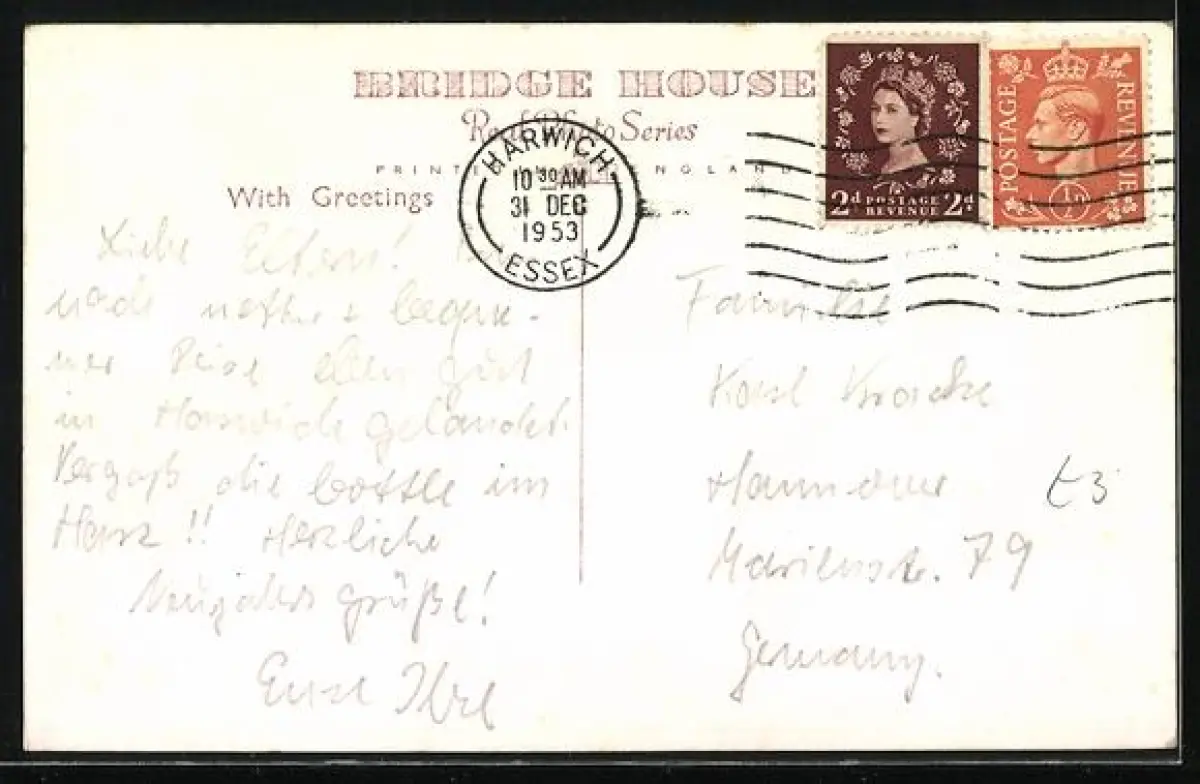 BRIDGE HOUSE
Real Photo Series
PRINT ENGLAND
HARWICH.
10 30 AM
31 DEC
1953
ESSEX
2d POSTAGE REVENUE 2d
POSTAGE REVENUE
1/2
With Greetings
Liebe Eltern!
nach +
Reise eben gut
in Harwich gelandet.
Vergaß die bottle im
Harz!! Herzliche
Neujahrsgrüße!
Familie
Karl Kracke
Hannover
£3
Marienstr. 79
Germany.